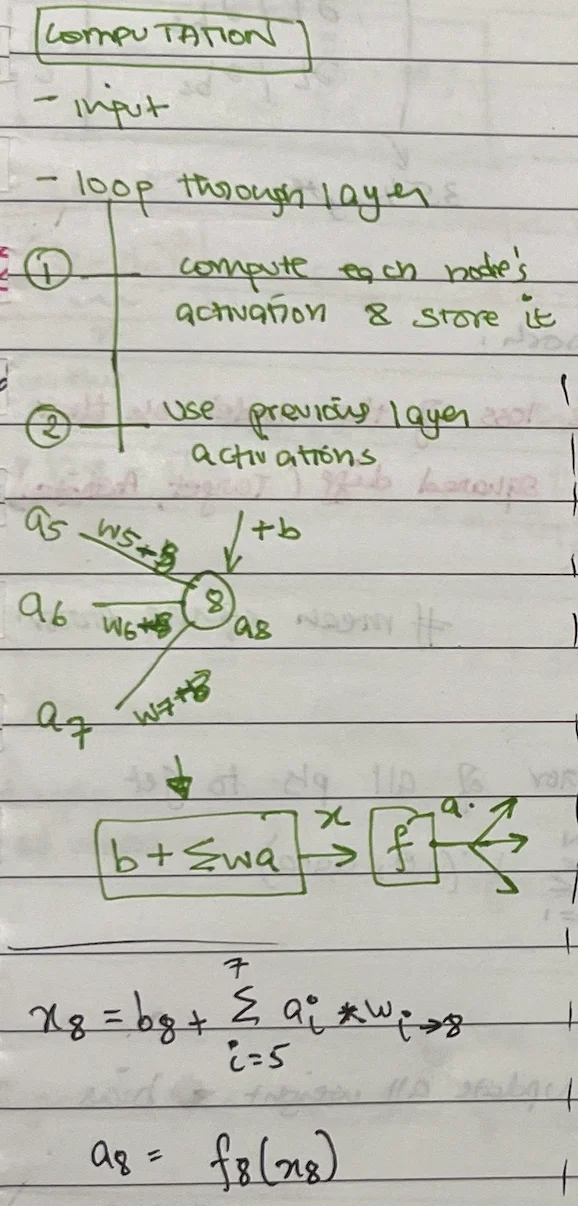 COMPUTATION
- input
- loop through layer
① compute each node's
activation & store it
② use previous layer
activations
a5 w5→8 +b
a6 w6→8 8 a8
a7 w7→8
b + Σwa x f a
7
x8 = b8 + Σ ai * wi→8
i=5
a8 = f8(x8)